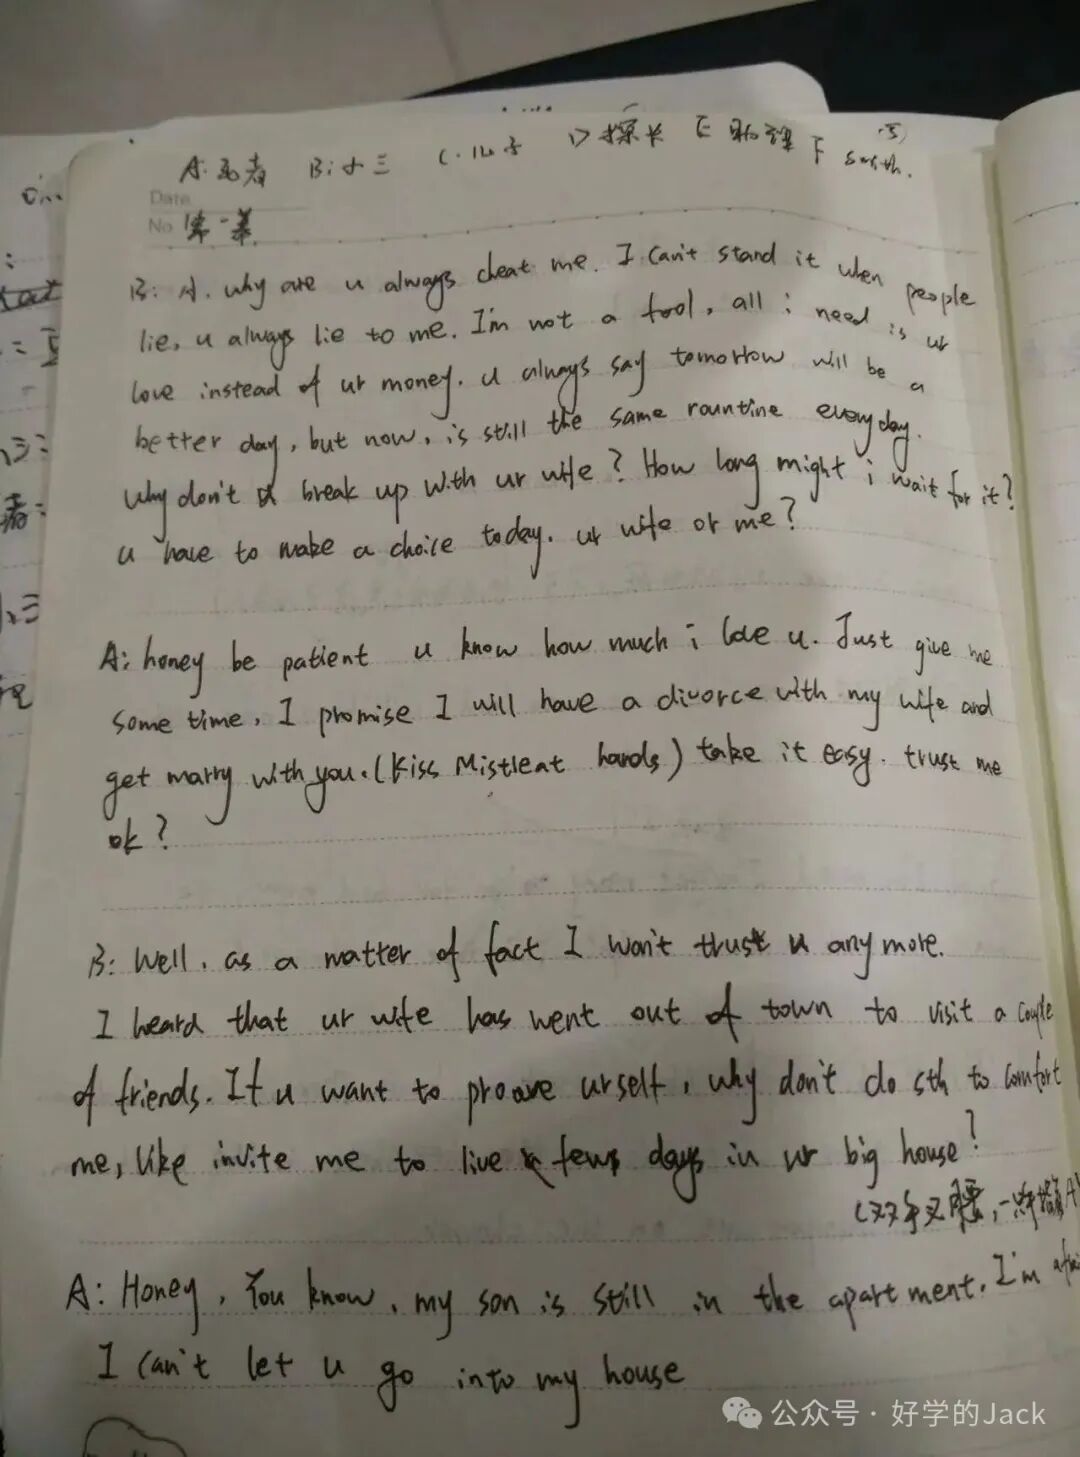 A: 死者 B: 小三 C. 儿子 D 探长 E 助理 F smith.
Date
No 第一幕
B: A. why are u always cheat me. I can't stand it when people
lie, u always lie to me. I'm not a fool, all i need is ur
love instead of ur money. u always say tomorrow will be a
better day, but now, is still the same rountine everyday.
why don't u break up with ur wife? How long might i wait for it?
u have to make a choice today. ur wife or me?
A: honey be patient u know how much i love u. Just give me
some time, I promise I will have a divorce with my wife and
get marry with you. (kiss Mistleat hands) take it easy. trust me
ok?
B: Well, as a matter of fact I won't trust u any more.
I heard that ur wife has went out of town to visit a couple
of friends. If u want to proove urself, why don't do sth to comfort
me, like invite me to live few days in ur big house?
(双手叉腰,
A: Honey, You know, my son is still in the apartment. I'm
I can't let u go into my house
公众号·好学的Jack